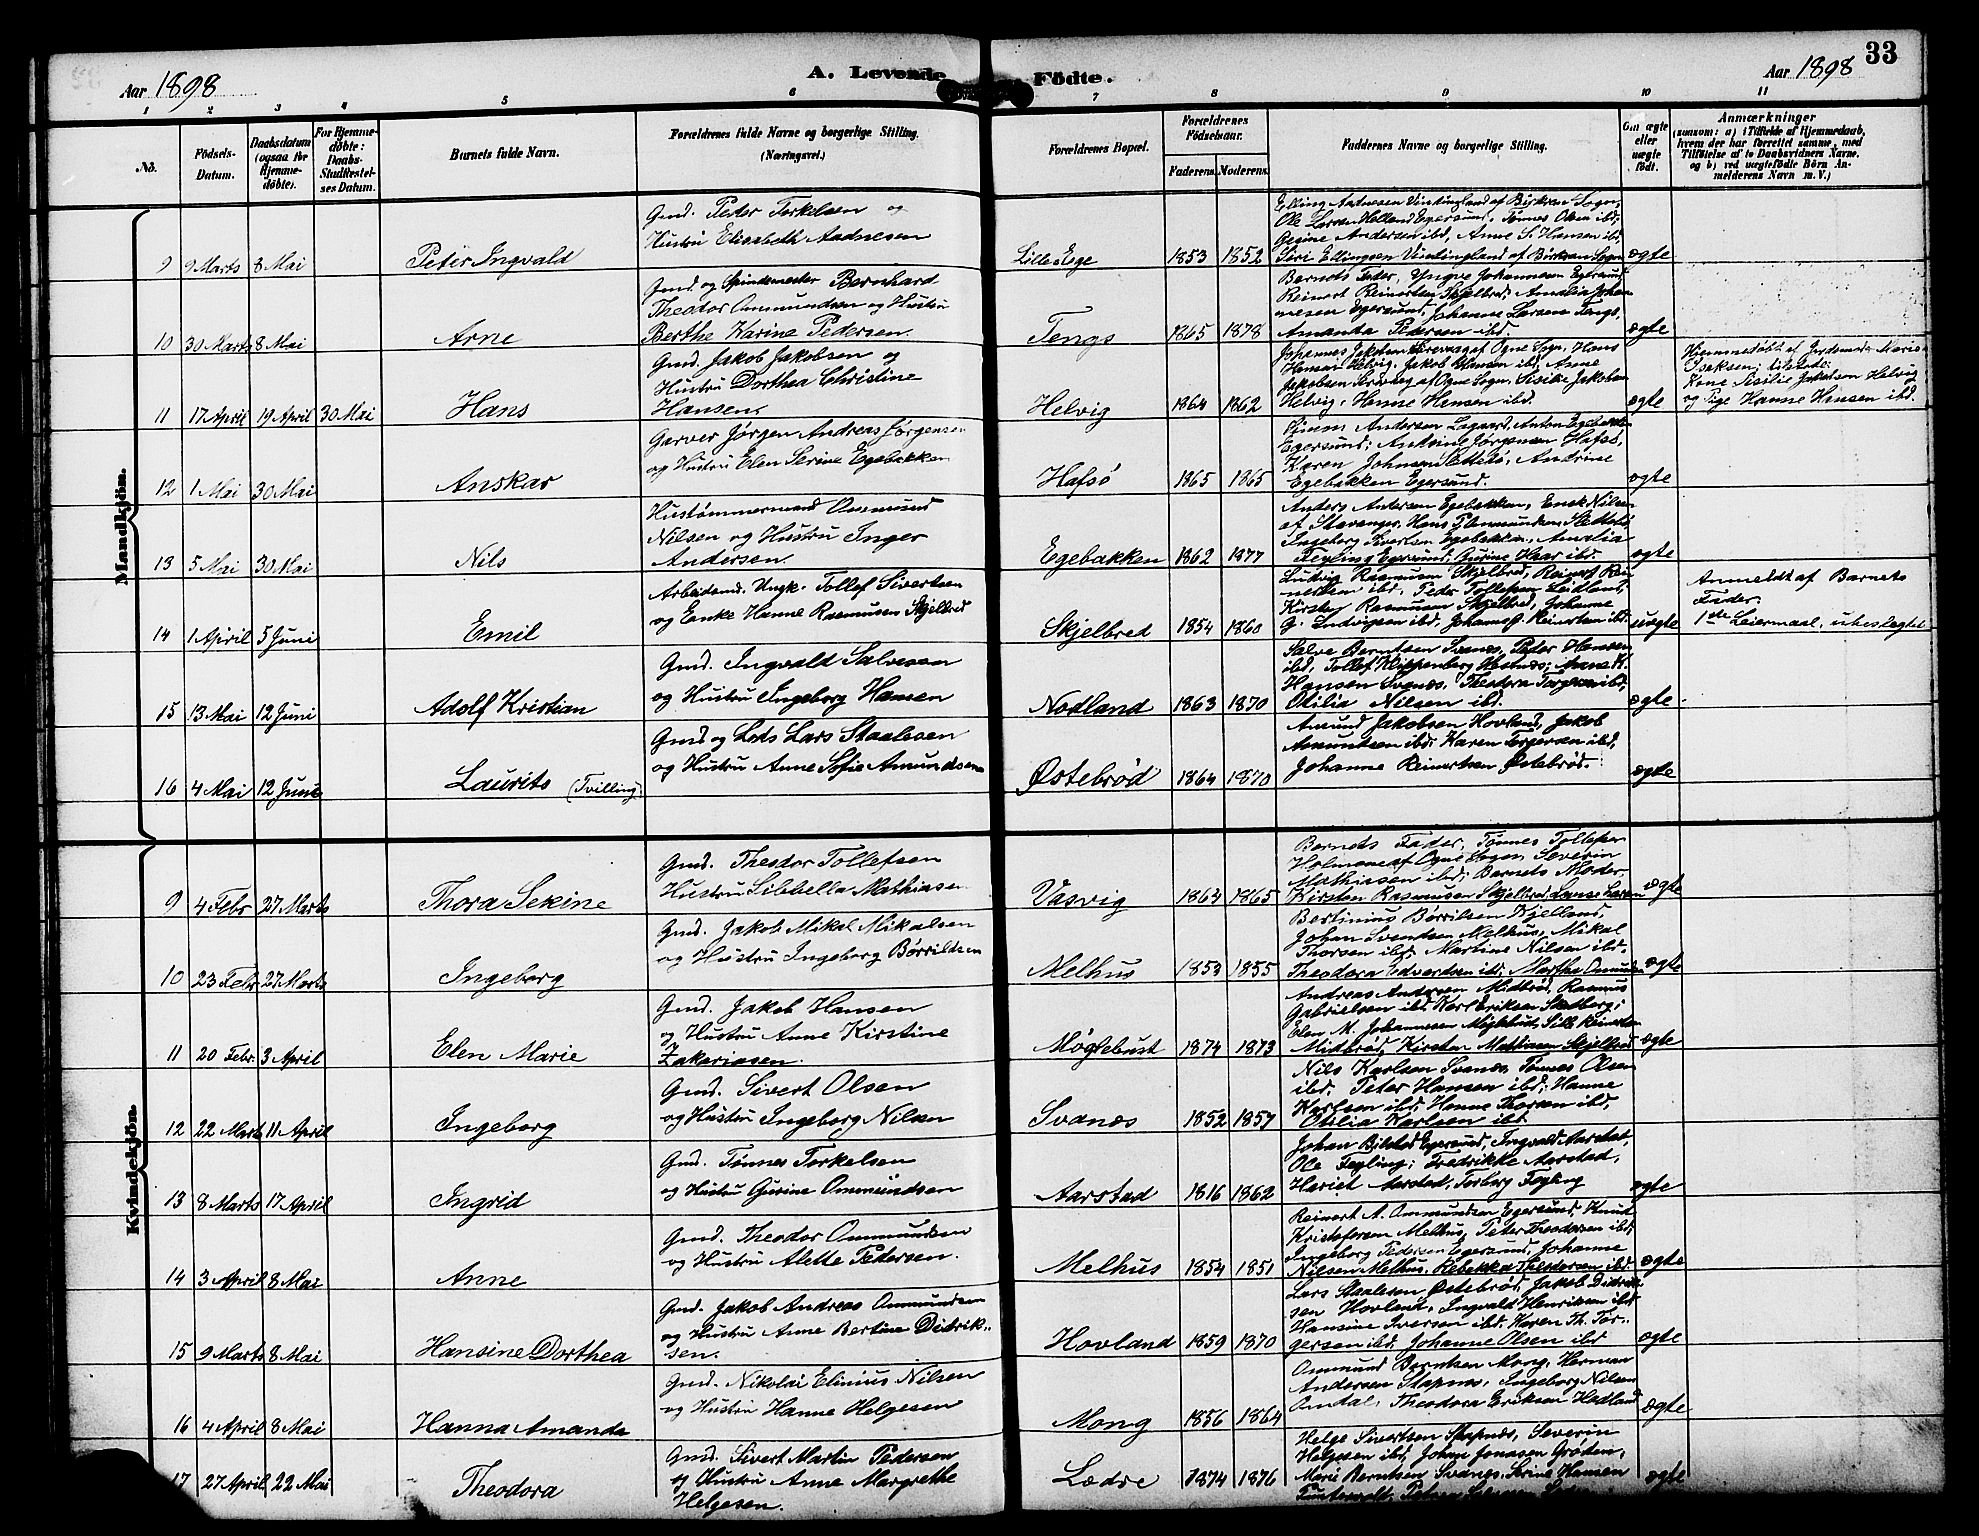 33
Aar 1898
A. Levende Födte.
Aar 1898
1 2 3 4 5 6 7 8 9 10 11
No.
Födsels-Datum.
Daabsdatum (ogsaa for Hjemme-døbte).
For Hjemme-døbte: Daabs-Stadfæstel-ses Datum.
Barnets fulde Navn.
Forældrenes fulde Navne og borgerlige Stilling.
(Næringsvei.)
Forældrenes Bopæl.
Forældrenes Födselsaar.
Faderens. Moderens.
Faddernes Navne og borgerlige Stilling.
Om ægte eller uægte født.
Anmærkninger
(saasom: a) i Tilfælde af Hjemmedaab, hvem der har forrettet samme, med Tilføielse af to Daabsvidners Navne, og b) ved uægtefødte Börn An-melderens Navn m. V.)
Mandkjön.
9 9 Marts 8 Mai Peter Ingvald
Gmd. Peter Torkelsen og
Hustru Elisabeth Aadnesen
Lille Ege 1853 1852
Ole Larsen Helland Egersund, Tønnes Olsen ibd,
Gesine Andersen ibd, Anne S. Hansen ibd,
ægte
10 30 Marts 8 Mai Arne
Gmd. og Spindemester Bernhard
Theodor Ommundsen og Hustru
Berthe Karine Pedersen.
Tengs 1865 1878
Barnets Fader, Yngve Johannesen Egersund
Reinert Reinertsen Skjelbred, Amalia Johan
nesen Egersund, Johanne Larsen Tengs,
Amanda Pedersen ibd.
ægte
11 17 April 19 April 30 Mai Hans
Gmd. Jakob Jakobsen og
Hustru Dorthea Christine
Hansen.
Helvig 1864 1862
Hansen Helvig, Jakob Hansen ibd, Anne
Helvig, Hanne Hansen ibd.
ægte
Hjemmedøbt af Jordemoder Marie
Isaksen; tilstede:
Kone Sisilie Jakobsen Helvig
og Pige Hanne Hansen ibd.
12 1 Mai 30 Mai Anskar
Garver Jørgen Andreas Jørgensen
og Hustru Elen Serine Egebakken
Hafsø 1865 1865
Egersund; Antrine Jørgensen Hafsø,
Karen Johnsen Slettebø, Andrine
Egebakken Egersund.
ægte
13 5 Mai 30 Mai Nils
Hustømmermand Ommund
Nilsen og Hustru Inger
Andersen.
Egebakken 1862 1877
Anders Andersen Egebakken, Enok Nilsen
af Stavanger, Hans Ommundsen Slettebø
Ingeborg Sivertsen Egebakken, Amalia
ægte
14 1 April 5 Juni Emil
Arbeidsmd. Ungk. Tollef Sivertsen
og Enke Hanne Rasmusen Skjelbred
Skjelbred 1854 1860
Ludvig Rasmusen Skjelbred, Reinert Rei-
nertsen ibd, Peder Tollefsen Leidland,
Kirsten Rasmusen Skjelbred, Johanne
G. Ludvigsen ibd, Johanne J. Reinertsen ibd.
uægte
Anmeldt af Barnets
Fader.
1ste Leiermaal, ubeslegtet
15 13 Mai 12 Juni Adolf Kristian
Gmd. Ingvald Salvesen
og Hustru Ingeborg Hansen
Nodland 1863 1870
Salve Berntsen Svanes, Peder Hansen
ibd, Tollef Klippenberg Abstnes; Anne K.
Hansen Svanes, Theodora Torgersen ibd,
Otilia Nilsen ibd.
ægte.
16 4 Mai 12 Juni Laurits (Tvilling)
Gmd og Lods Lars Staalesen
og Hustru Anne Sofie Amundsen
Østebrød 1864 1870
Amund Jakobsen Hovland, Jakob
Amundsen ibd; Karen Torgersen ibd,
Johanne Reinertsen Østebrød.
ægte
Kvindekjön.
9 4 Febr 27 Marts Thora Sekine
Gmd. Theodor Tollefsen
Hustru Sibbella Mathiasen
Vasvig 1864 1865
Barnets Fader, Tønnes Tollefsen
Holmane af Ogne Sogn, Severin
Mathiasen ibd; Barnets Moder
Kirsten Rasmusen Skjelbred,
ægte
10 23 Febr 27 Marts Ingeborg
Gmd. Jakob Mikal Mikalsen
og Hustru Ingeborg Børrildsen
Melhus 1853 1855
Bertinius Børrilsen Kjelland,
Johan Svendsen Melhus, Mikal
Thorsen ibd; Martine Nilsen ibd.
Theodora Edvardsen ibd; Martha Ommundsen
ægte
11 20 Febr. 3 April Elen Marie
Gmd. Jakob Hansen
og Hustru Anne Kirstine
Zakariasen.
Møglebust 1874 1873
Andreas Andersen Midbrød, Rasmus
Gabrielsen ibd, Karl Eriksen Sædberg;
Midbrød, Kirsten Mathiasen Skjelbred
ægte
12 22 Marts 11 April Ingeborg
Gmd. Sivert Olsen
og Hustru Ingeborg Nilsen
Svanes 1852 1857
Nils Karlsen Svanes, Tønnes Olsen
ibd, Peter Hansen ibd; Hanne
Karlsen ibd, Hanne Thorsen ibd,
Otilia Karlsen ibd.
13 8 Marts 17 April Ingrid
Gmd. Tønnes Torkelsen
og Hustru Gurine Ommundsen
Aarstad 1816 1862
Johan Bilstad Egersund, Ingvald Aarstad,
Ole Fegling; Fredrikke Aarstad,
Hariet Aarstad, Torborg Fegling
ægte
14 3 April 8 Mai Anne
Gmd. Theodor Ommundsen
og Hustru Alette Pedersen.
Melhus 1854 1851
Reinert A. Ommundsen Egersund, Knut
Kristofersen Melhus, Peter Theodorsen ibd;
Ingeborg Pedersen Egersund, Johanne
Nilsen Melhus, Rebekka Theodorsen ibd.
ægte
15 9 Marts 8 Mai Hansine Dorthea
Gmd. Jakob Andreas Ommundsen
og Hustru Anne Bertine Didrik-
sen.
Hovland 1859 1870
Lars Staalesen Østebrød, Jakob Didrik-
sen Hovland, Ingvald Henriksen ibd
Hansine Iversen ibd. Karen Th. Tor-
gersen ibd, Johanne Olsen ibd
ægte
16 4 April 8 Mai Hanna Amanda
Gmd. Nikolai Elinius Nilsen
og Hustru Hanne Helgesen
Mong 1856 1864
Ommund Berntsen Mong, Herman
Andersen Stapnes, Ingeborg Nilsen
Omdal, Theodora Eriksen Hadland
ægte
17 27 April 22 Mai Theodora
Gmd. Sivert Martin Pedersen
og Hustru Anne Margrethe
Helgesen.
Lædre 1874 1876
Helge Sivertsen Stapnes, Severin
Helgesen ibd, Johan Jonasen Grøden,
Marie Berntsen Svanes, Serine Hansen
ægte